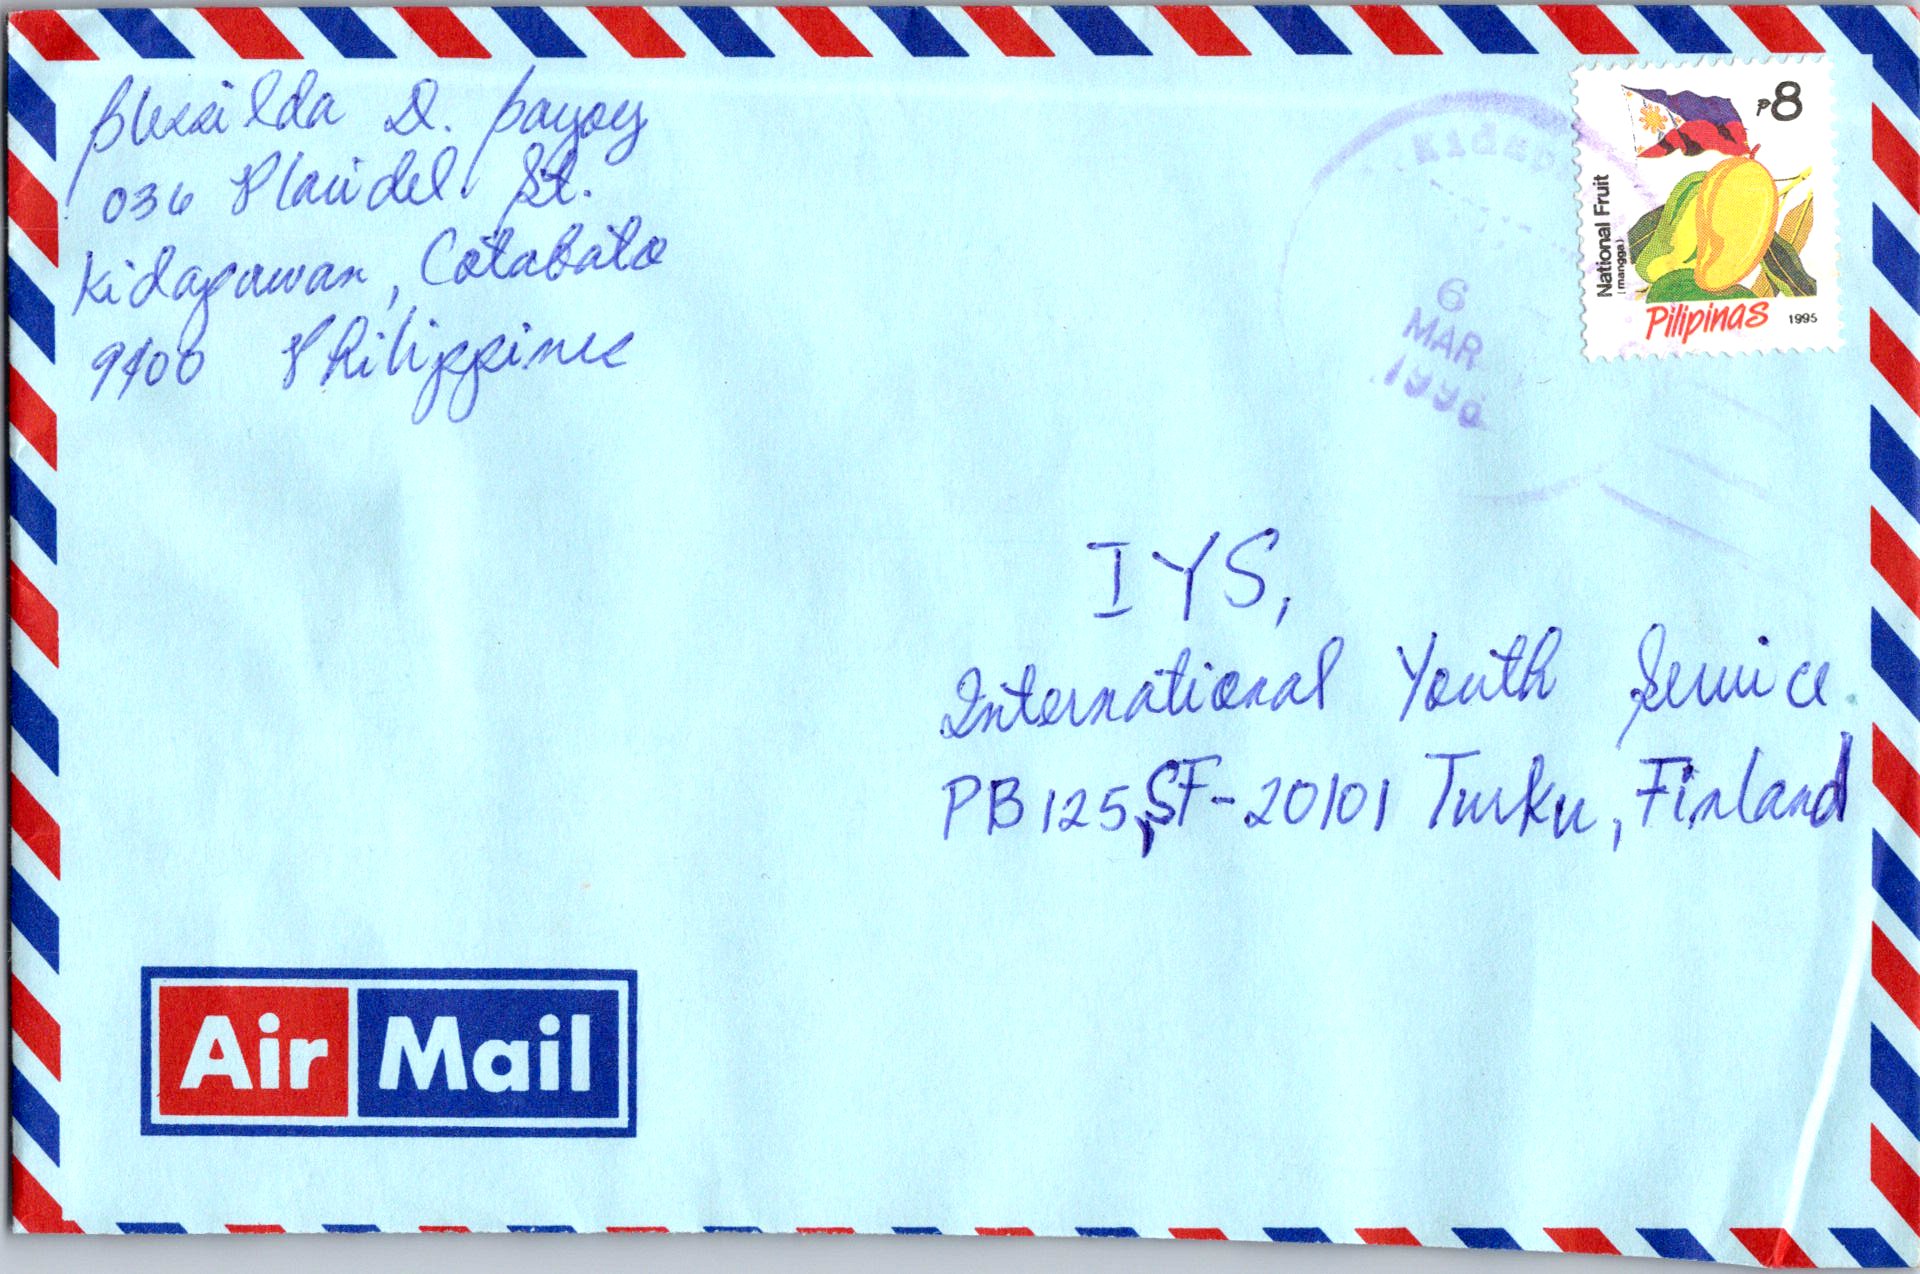 D. Payoy
036 Plaridel St.
Kidapawan, Cotabato
9400 Philippines
Kidap
6
MAR
1996
₱8
National Fruit
(mangga)
Pilipinas 1995
IYS,
International Youth Service
PB 125, SF-20101 Turku, Finland
Air Mail